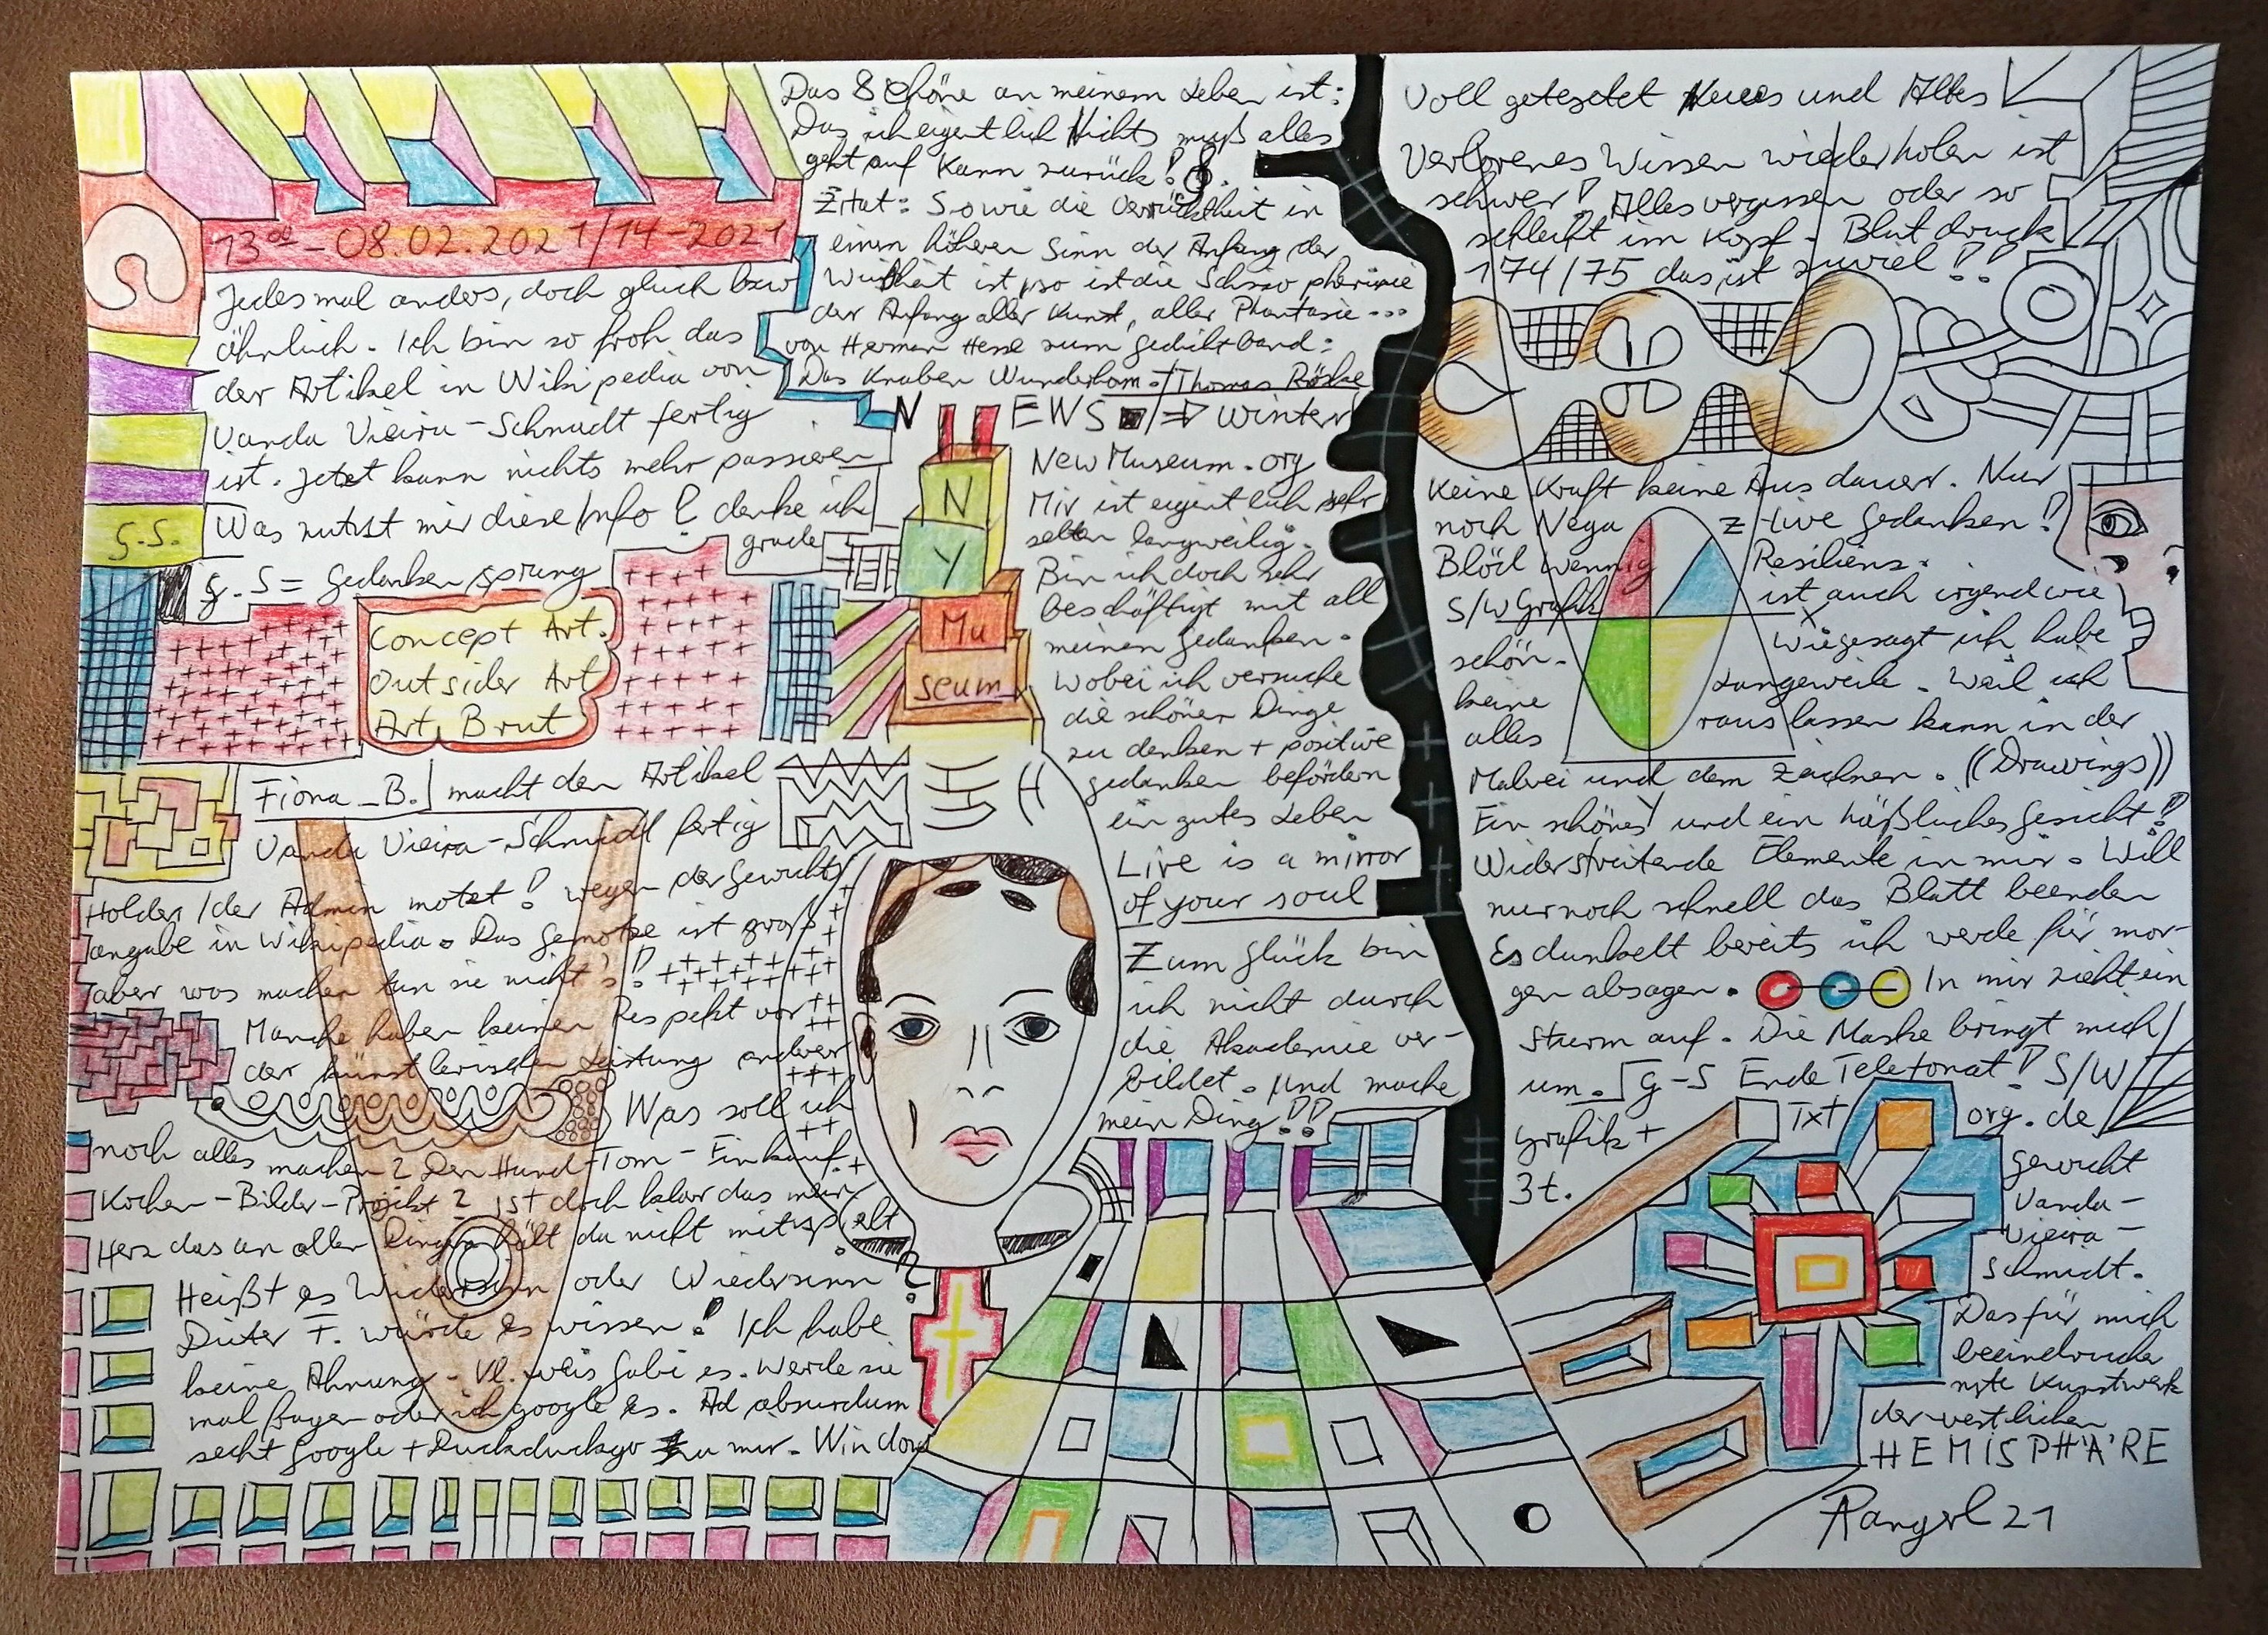 13 - 08.02.2021/14-2021
Jedesmal anders, doch gleich bzw
ähnlich. Ich bin so froh das
der Artikel in Wikipedia von
Vanda Vieira-Schmidt fertig
ist. Jetzt kann nichts mehr passieren
Was nutzt mir diese Info? denke ich
grade
G.S.
G.S = Gedanken sprung
Concept Art.
Outsider Art
Art Brut
Fiona_B. macht den Artikel
Vanda Vieira-Schmidt fertig
Holder/der Admin motzt! wegen der Gewichts
angabe in Wikipedia. Das Gemotze ist groß
aber was machen tun sie nicht!
Manche haben keinen Respekt vor
der künstlerischen Leistung anderer
Was soll ich
noch alles machen? Den Hund-Tom-Einkauf.
Kochen-Bilder-Projekt? ist doch klar das mein
Herz das an allen Dingen hält da nicht mitspielt
Heißt es Widersinn oder Wiedersinn?
Dieter T. würde es wissen! Ich habe
keine Ahnung. Vl. weis Gabi es. Werde sie
mal fragen oder ich google es. Ad absurdum
Google + Duckduckgo zu mir. Windows
Das Schöne an meinem Leben ist:
Das ich eigentlich Nichts muß alles
geht auf Kann zurück!
Zitat: Sowie die Verrücktheit in
einen höheren Sinn der Anfang der
Weißheit ist, so ist die Schizophrenie
der Anfang aller Kunst, aller Phantasie...
von Herman Hesse zum Gedichtband:
Das Knaben Wunderhorn./Thomas Röske
NEWS / => Winter
N
Y
Mu
seum
NewMuseum.org
Mir ist eigentlich sehr
selten langweilig.
Bin ich doch sehr
beschäftigt mit all
meinen Gedanken.
Wobei ich versuche
die schönen Dinge
zu denken + positive
gedanken befördern
ein gutes Leben
Live is a mirror
of your soul
Zum Glück bin
ich nicht durch
die Akademie ver-
bildet. Und mache
mein Ding!!
Voll getextet Neues und Altes
Verlorenes Wissen wiederholen ist
schwer! Alles vergessen oder so
schleift im Kopf. Blut druck
174/75 das ist zuviel!!
Keine Kraft keine Ausdauer. Nur
noch Nega z-tive Gedanken!
Blöd wennig Resiliens.
S/W Grafik ist auch irgendwie
X
schön. Wiegesagt ich habe
keine Langeweile. Weil ich
alles rauslassen kann in der
Malrei und dem Zeichnen. ((Drawings))
Y
Ein schönes und ein häßliches Gesicht!
Widerstreitende Elemente in mir. Will
nurnoch schnell das Blatt beenden
Es dunkelt bereits ich werde für mor-
gen absagen. In mir zieht ein
Sturm auf. Die Maske bringt mich
um. G-S Ende Telefonat! S/W
Grafik + Txt org.de
3t. Gewicht
Vanda-
Vieira-
Schmidt.
Das für mich
beeindrucke
nste Kunstwerk
der westlichen
HEMISPHÄRE
Rangerl 21